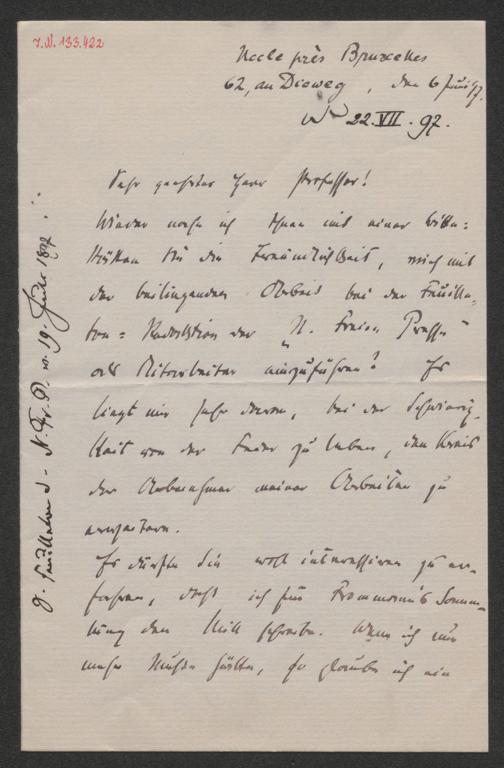 I.N. 133.422
Uccle près Bruxelles
62, au Dieweg, den 6 Juni 97.
22.VII.97.
Sehr geehrter Herr Professor!
Wieder nahe ich Ihnen mit einer Bitte:
Hätten Sie die Freundlichkeit, mich mit
der beiliegenden Arbeit bei der Feuille-
ton-Redaktion der „N. Freien Presse"
als Mitarbeiter einzuführen? Es
liegt mir sehr daran, bei der Schwierig-
keit von der Feder zu leben, den Kreis
der Abnehmer meiner Arbeiten zu
erweitern.
Es dürfte Sie wohl interessieren zu er-
fahren, daß ich für Frommann's Samm-
lung den Mill schreibe. Wenn ich nur
mehr Muße hätte, so glaube ich ein
Feuilleton d. N. Fr. Pr. v. 19. 1897